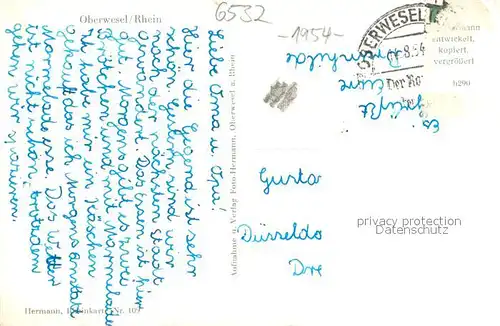 Oberwesel/Rhein
6532
-1954-
OBERWESEL
8.54
Der Ro
entwickelt,
kopiert,
vergrößert
6290
Liebe Oma u. Opa!
Hier die Gegend ist sehr
schön. Gestern sind wir
nach der nächsten Stadt
gewandert. Das Essen ist hier
gut. Morgens gibt es zwei
Brötchen und mit Marmelade
ich habe mir ein Käschen
gekauft das ich Morgens anstatt
Marmelade esse. Das Wetter
ist nicht schön, trotzdem
gehen wir spazieren.
Es grüßt
Eure
Aufnahme u. Verlag Foto-Hermann, Oberwesel a. Rhein
Gusta
Düsseldo
Dre
privacy protection
Datenschutz
Hermann, Nr. 109